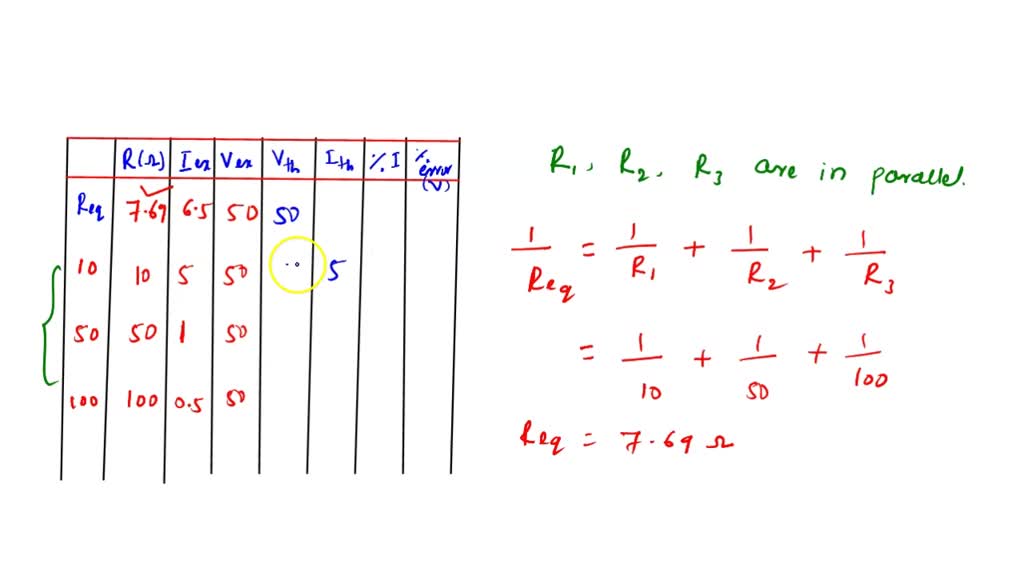 R(Ω) Iex Vex Vth Ith % I % error (V)
Req 7.69 6.5 50 50
10 10 5 50 5
50 50 1 50
100 100 0.5 50
R1, R2, R3 are in parallel.
1/Req = 1/R1 + 1/R2 + 1/R3
= 1/10 + 1/50 + 1/100
Req = 7.69 Ω